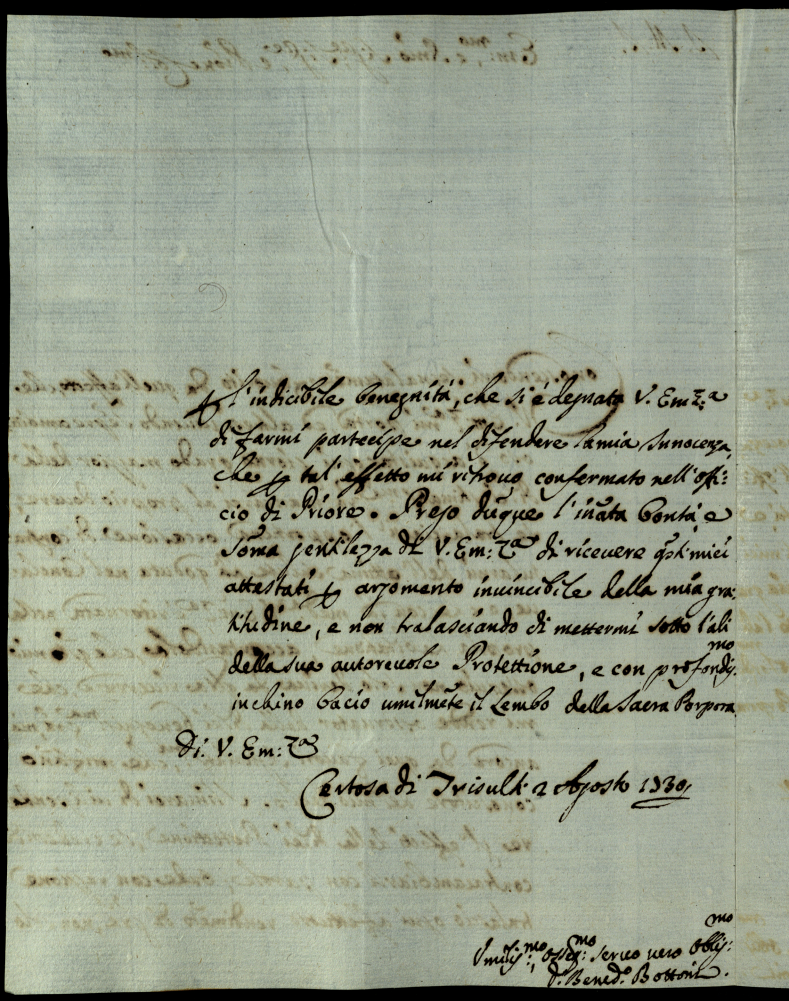 ꝑ l'indicibile benegnità, che si è degnata V. Em:za
di farmi partecipe nel difendere la mia Innocenza,
che ꝑ tal' effetto mi ritrovo confermato nell'offi:
cio di Priore. Prego dūque l'inata bontà e
soma gentilezza di V. Em:za di ricevere qsti miei
attestati ꝑ argomento invincibile della mia gra:
titudine, e non tralasciando di mettermi sotto l'ali
della sua autorevole Protettione, e con profondis:mo
inchino bacio umilmēte il Lembo della Sacra Porpora.
Di V. Em:za
Certosa di Trisulti 2 Agosto 1730,
Umilis:mo, Osseq:mo servo vero Oblig:mo
D. Bened:o Bottoni.